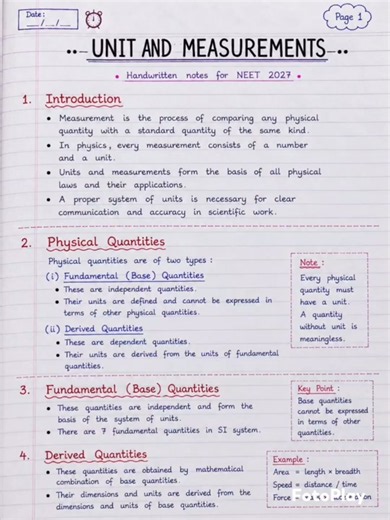 Date:
__/__/__
Page 1
UNIT AND MEASUREMENTS
• Handwritten notes for NEET 2027 •
1. Introduction
• Measurement is the process of comparing any physical
quantity with a standard quantity of the same kind.
• In physics, every measurement consists of a number
and a unit.
• Units and measurements form the basis of all physical
laws and their applications.
• A proper system of units is necessary for clear
communication and accuracy in scientific work.
2. Physical Quantities
Physical quantities are of two types :
(i) Fundamental (Base) Quantities
• These are independent quantities.
• Their units are defined and cannot be expressed in
terms of other physical quantities.
(ii) Derived Quantities
• These are dependent quantities.
• Their units are derived from the units of fundamental
quantities.
Note :
Every physical
quantity must
have a unit.
A quantity
without unit is
meaningless.
3. Fundamental (Base) Quantities
• These quantities are independent and form the
basis of the system of units.
• There are 7 fundamental quantities in SI system.
Key Point :
Base quantities
cannot be expressed
in terms of other
quantities.
4. Derived Quantities
• These quantities are obtained by mathematical
combination of base quantities.
• Their dimensions and units are derived from the
dimensions and units of base quantities.
Example :
Area = length × breadth
Speed = distance / time
Force =
FotoPlay